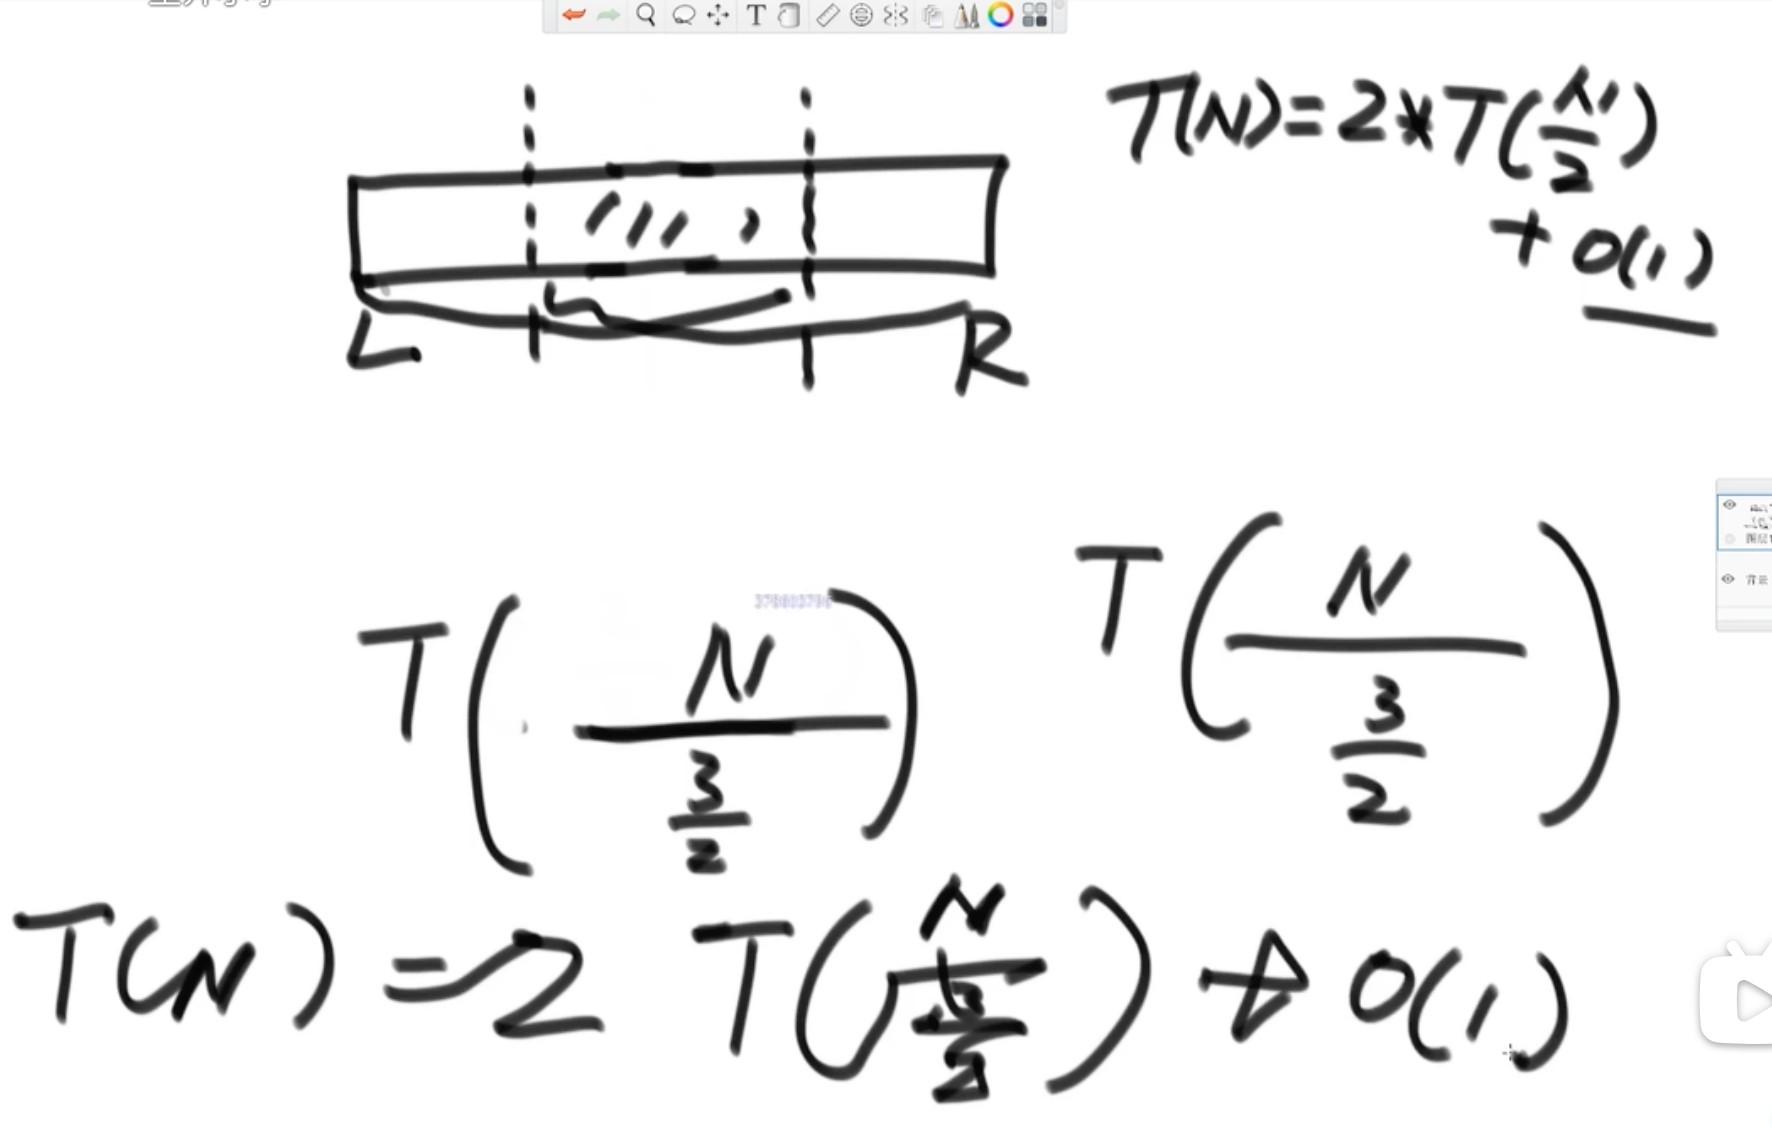 T(N)=2*T(N/2)
+O(1)
L R
T(N/(3/2)) T(N/(3/2))
T(N)=2 T(N/(3/2))+O(1)